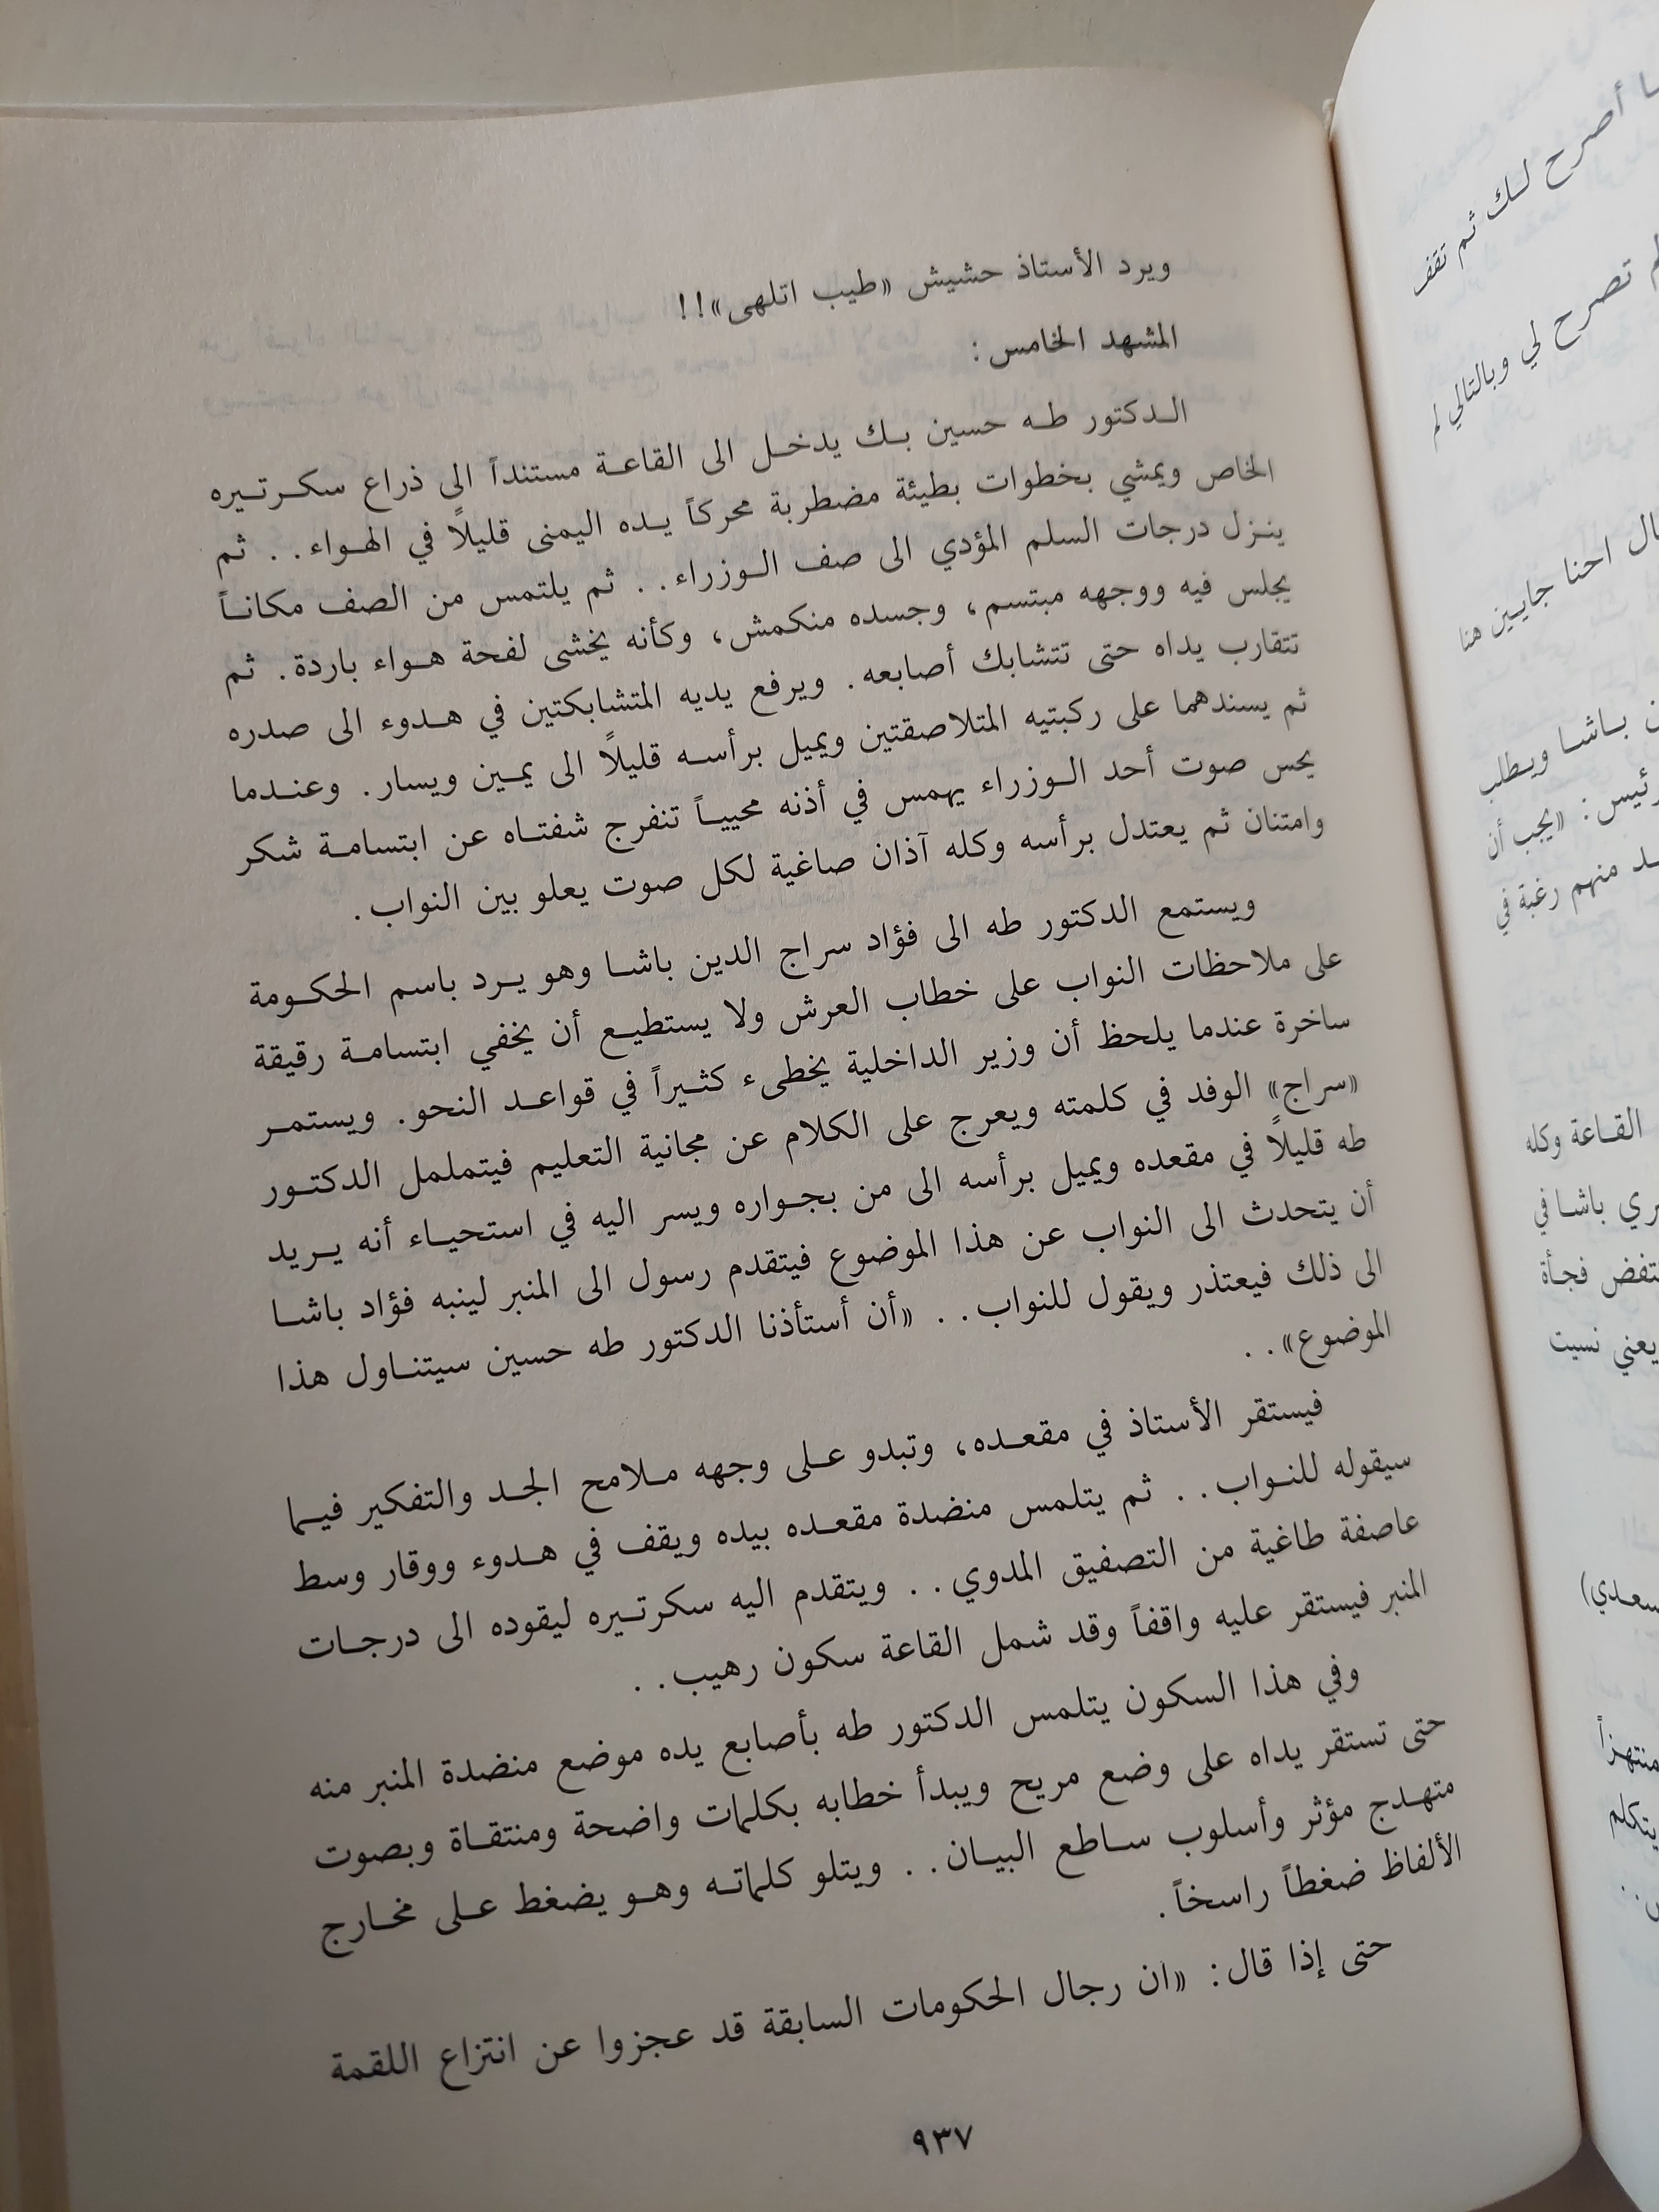 أصرح لك ثم تقف
تصرح لي وبالتالي لم
احنا جايين هنا
باشا ويطلب
«يجب أن
منهم رغبة في
القاعة وكله
باشا في
فجأة
يعني نسيت
منتهزاً
يتكلم
ويرد الأستاذ حشيش «طيب اتلهى»!!
المشهد الخامس :
الدكتور طه حسين بك يدخل الى القاعة مستنداً الى ذراع سكرتيره
الخاص ويمشي بخطوات بطيئة مضطربة محركاً يده اليمنى قليلاً في الهواء. . ثم
ينزل درجات السلم المؤدي الى صف الوزراء. . ثم يلتمس من الصف مكاناً
يجلس فيه ووجهه مبتسم، وجسده منكمش، وكأنه يخشى لفحة هواء باردة. ثم
تتقارب يداه حتى تتشابك أصابعه. ويرفع يديه المتشابكتين في هدوء الى صدره
ثم يسندهما على ركبتيه المتلاصقتين ويميل برأسه قليلاً الى يمين ويسار. وعندما
يحس صوت أحد الوزراء يهمس في أذنه محيياً تنفرج شفتاه عن ابتسامة شكر
وامتنان ثم يعتدل برأسه وكله آذان صاغية لكل صوت يعلو بين النواب.
ويستمع الدكتور طه الى فؤاد سراج الدين باشا وهو يرد باسم الحكومة
على ملاحظات النواب على خطاب العرش ولا يستطيع أن يخفي ابتسامة رقيقة
ساخرة عندما يلحظ أن وزير الداخلية يخطىء كثيراً في قواعد النحو. ويستمر
«سراج» الوفد في كلمته ويعرج على الكلام عن مجانية التعليم فيتململ الدكتور
طه قليلاً في مقعده ويميل برأسه الى من بجواره ويسر اليه في استحياء أنه يريد
أن يتحدث الى النواب عن هذا الموضوع فيتقدم رسول الى المنبر لينبه فؤاد باشا
الى ذلك فيعتذر ويقول للنواب. . «أن أستأذنا الدكتور طه حسين سيتناول هذا
الموضوع». .
فيستقر الأستاذ في مقعده، وتبدو على وجهه ملامح الجد والتفكير فيما
سيقوله للنواب. . ثم يتلمس منضدة مقعده بيده ويقف في هدوء ووقار وسط
عاصفة طاغية من التصفيق المدوي. . ويتقدم اليه سكرتيره ليقوده الى درجات
المنبر فيستقر عليه واقفاً وقد شمل القاعة سكون رهيب. .
وفي هذا السكون يتلمس الدكتور طه بأصابع يده موضع منضدة المنبر منه
حتى تستقر يداه على وضع مريح ويبدأ خطابه بكلمات واضحة ومنتقاة وبصوت
متهدج مؤثر وأسلوب ساطع البيان. . ويتلو كلماته وهو يضغط على مخارج
الألفاظ ضغطاً راسخاً.
حتى إذا قال: «ان رجال الحكومات السابقة قد عجزوا عن انتزاع اللقمة
٩٣٧